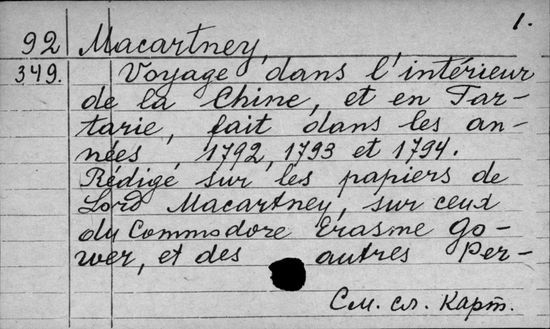 1.
92 Macartney,
349. Voyage dans l'intérieur
de la Chine, et en Tar-
tarie, fait dans les an-
nées 1792, 1793 et 1794.
Rédigé sur les papiers de
Lord Macartney, sur ceux
du Commodore Erasme Go-
wer, et des autres Per-
См. сл. карт.